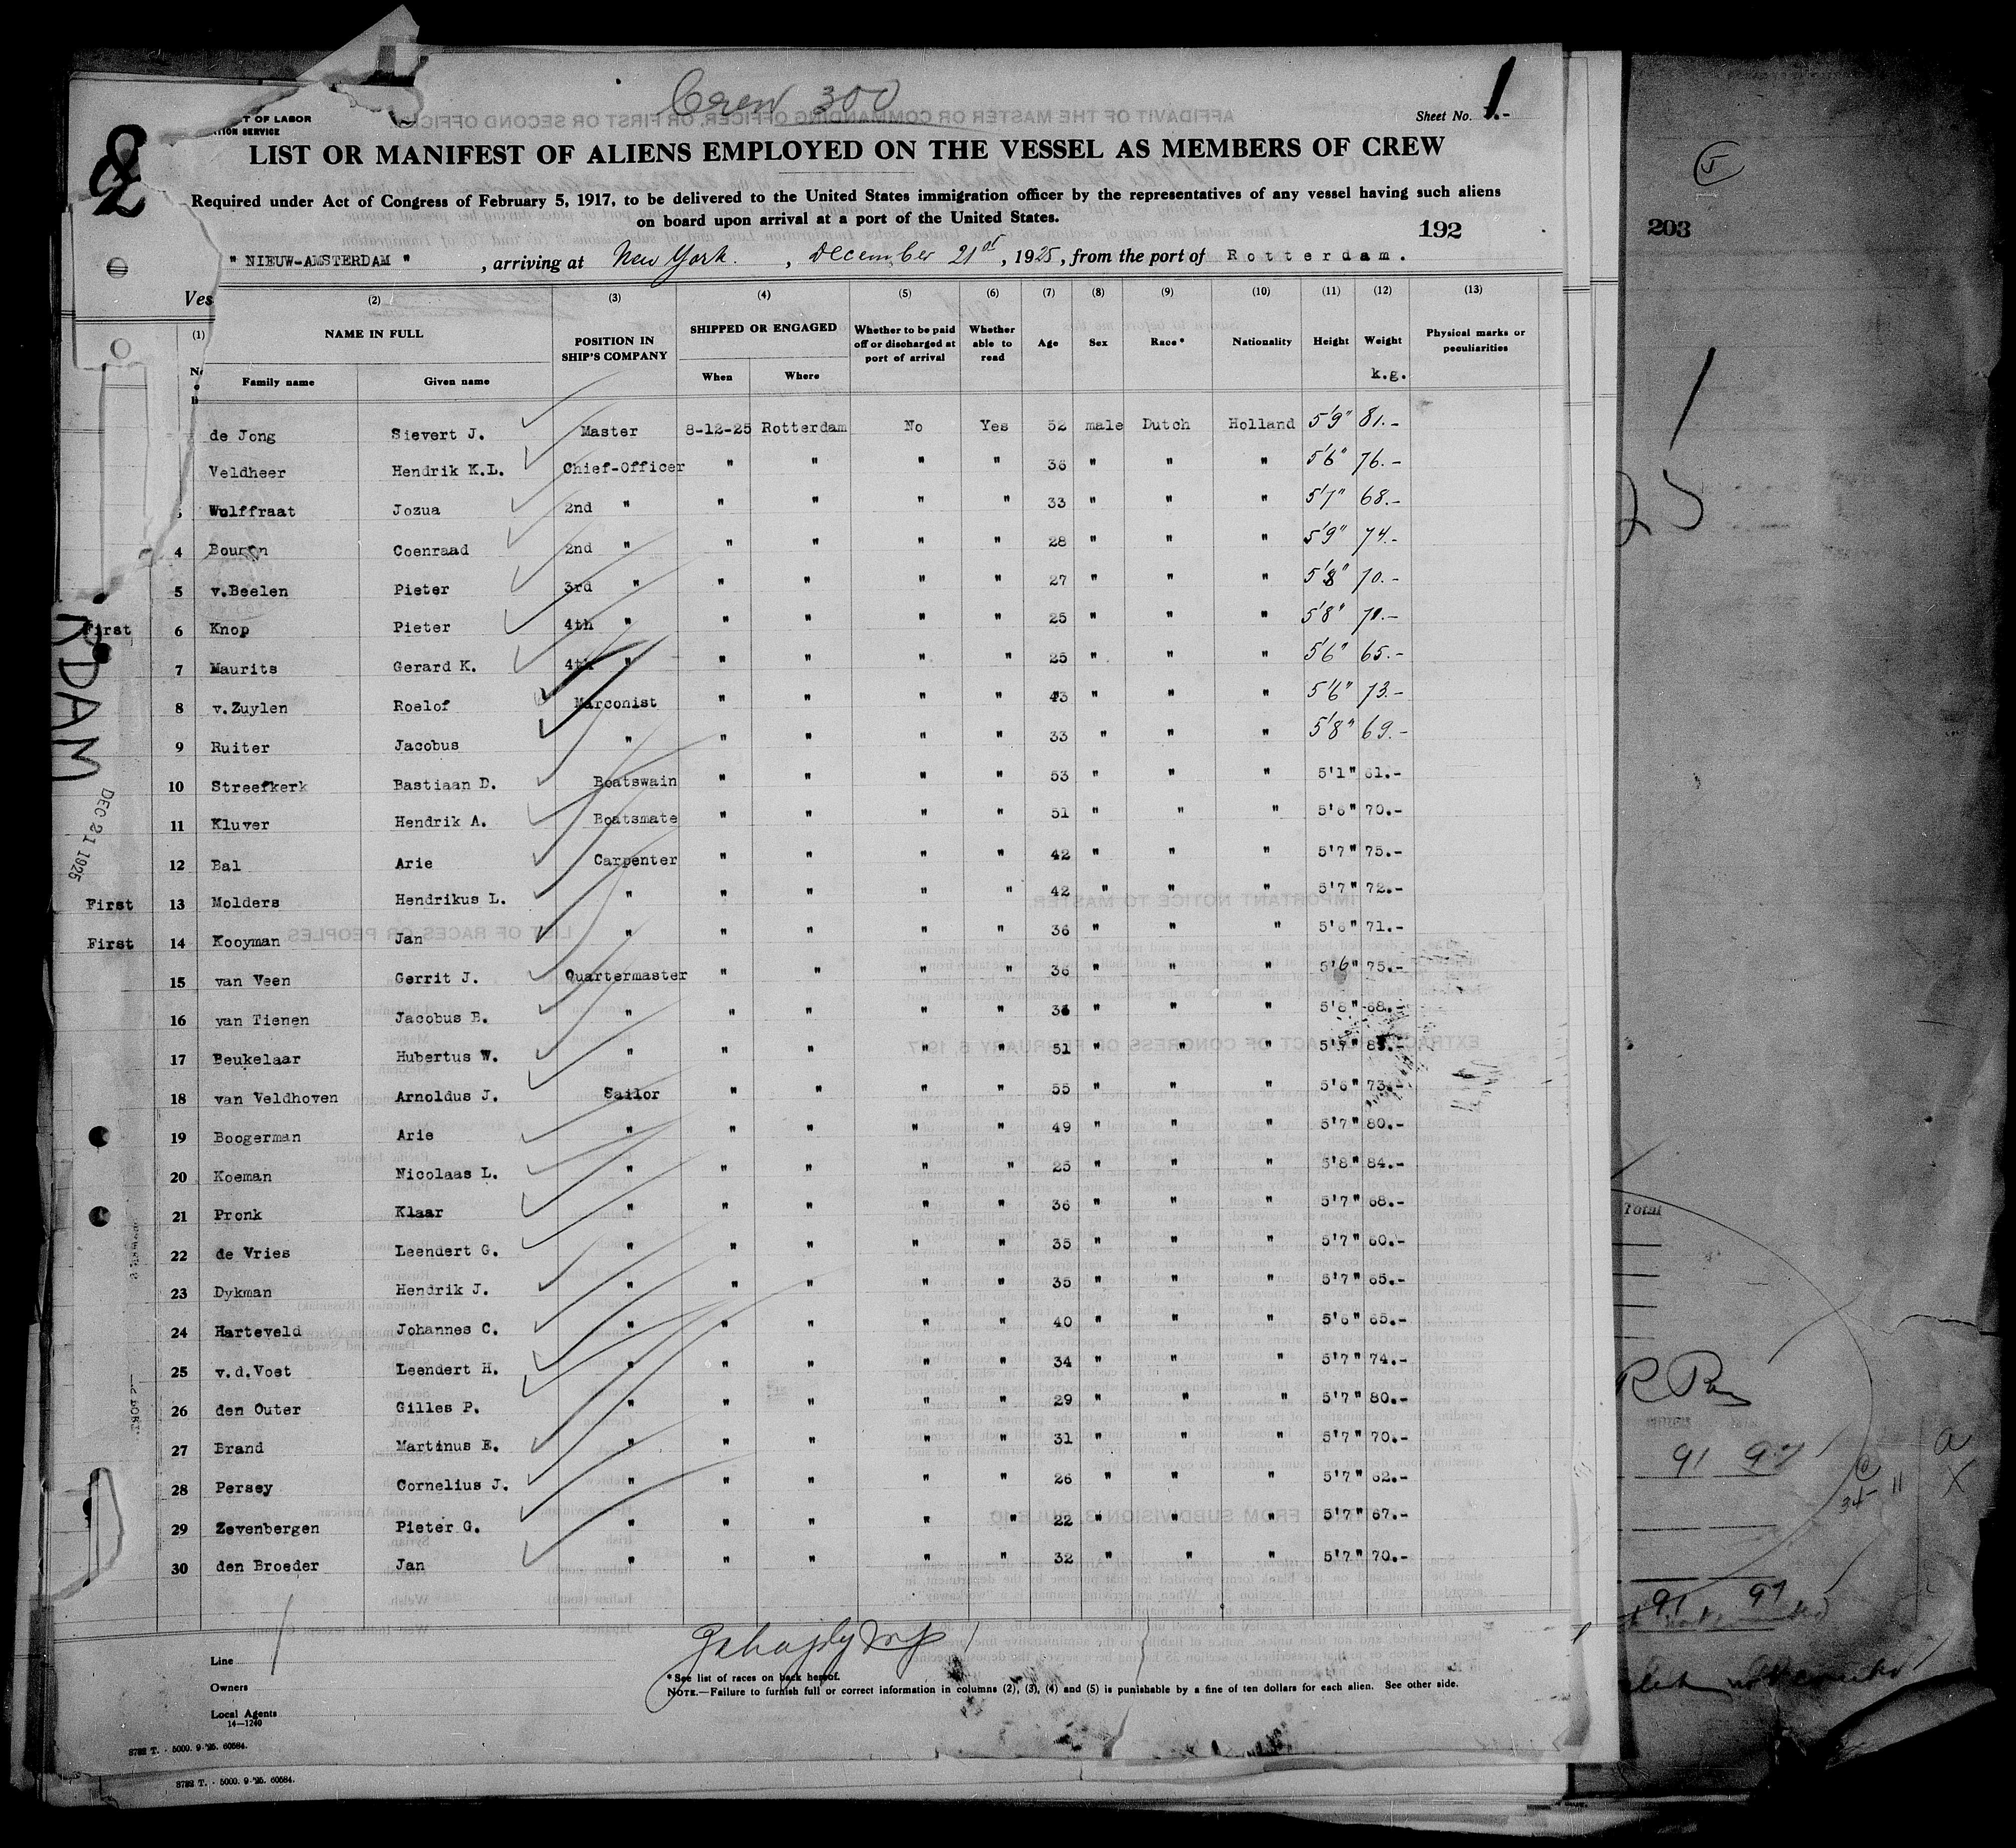 Crew 300
T OF LABOR
TION SERVICE
Sheet No. 1.-
LIST OR MANIFEST OF ALIENS EMPLOYED ON THE VESSEL AS MEMBERS OF CREW
Required under Act of Congress of February 5, 1917, to be delivered to the United States immigration officer by the representatives of any vessel having such aliens
on board upon arrival at a port of the United States.
192
203
" NIEUW-AMSTERDAM " , arriving at New York. , December 21st, 1925, from the port of Rotterdam.
Ves
(1) (2) (3) (4) (5) (6) (7) (8) (9) (10) (11) (12) (13)
NAME IN FULL
Family name Given name
POSITION IN SHIP'S COMPANY
SHIPPED OR ENGAGED
When Where
Whether to be paid off or discharged at port of arrival
Whether able to read
Age Sex Race* Nationality Height Weight k.g.
Physical marks or peculiarities
de Jong Sievert J. Master 8-12-25 Rotterdam No Yes 52 male Dutch Holland 5'9" 81.-
Veldheer Hendrik K.L. Chief-Officer " " " " 36 " " " 5'6" 76.-
Wolffraat Jozua 2nd " " " " " 33 " " " 5'7" 68.-
4 Coenraad 2nd " " " " " 28 " " " 5'9" 74.-
5 v.Beelen Pieter 3rd " " " " " 27 " " " 5'8" 70.-
First 6 Knop Pieter 4th " " " " " 25 " " " 5'8" 70.-
7 Maurits Gerard K. 4th " " " " " 25 " " " 5'6" 65.-
8 v.Zuylen Roelof Marconist " " " " 43 " " " 5'6" 73.-
9 Ruiter Jacobus " " " " " 33 " " " 5'8" 69.-
10 Streefkerk Bastiaan D. Boatswain " " " " 53 " " " 5'1" 61.-
11 Kluver Hendrik A. Boatsmate " " " " 51 " " " 5'6" 70.-
12 Bal Arie Carpenter " " " " 42 " " " 5'7" 75.-
First 13 Molders Hendrikus L. " " " " " 42 " " " 5'7" 72.-
First 14 Kooyman Jan " " " " " 36 " " " 5'6" 71.-
15 van Veen Gerrit J. Quartermaster " " " " 36 " " " 5'6" 75.-
16 van Tienen Jacobus B. " " " " " " " " 5'8" 68.-
17 Beukelaar Hubertus W. " " " " " 51 " " " 5'7"
18 van Veldhoven Arnoldus J. Sailor " " " " 55 " " " 5'6" 73.-
19 Boogerman Arie " " " " " 49 " " " 5'7" 80.-
20 Koeman Nicolaas L. " " " " " 25 " " " 5'8" 84.-
21 Pronk Klaar " " " " " 36 " " " 5'7" 68.-
22 de Vries Leendert G. " " " " " 35 " " " 5'7" 60.-
23 Dykman Hendrik J. " " " " " 35 " " " 5'7" 65.-
24 Harteveld Johannes C. " " " " " 40 " " " 5'6" 65.-
25 v.d.Voet Leendert H. " " " " " 34 " " " 5'7" 74.-
26 den Outer Gilles P. " " " " " 29 " " " 5'7" 80.-
27 Brand Martinus E. " " " " " 31 " " " 5'7" 70.-
28 Persey Cornelius J. " " " " " 26 " " " 5'7" 62.-
29 Zevenbergen Pieter G. " " " " " 22 " " " 5'7" 67.-
30 den Broeder Jan " " " " " 32 " " " 5'7" 70.-
RDAM
DEC 21 1925
Line
Owners
Local Agents
14—1240
*See list of races on back hereof.
NOTE.—Failure to furnish full or correct information in columns (2), (3), (4) and (5) is punishable by a fine of ten dollars for each alien. See other side.
8782 T. - 5000. 9-'25. 60584.
8782 T. - 5000. 9-'25. 60584.
Total
91 97
91 97